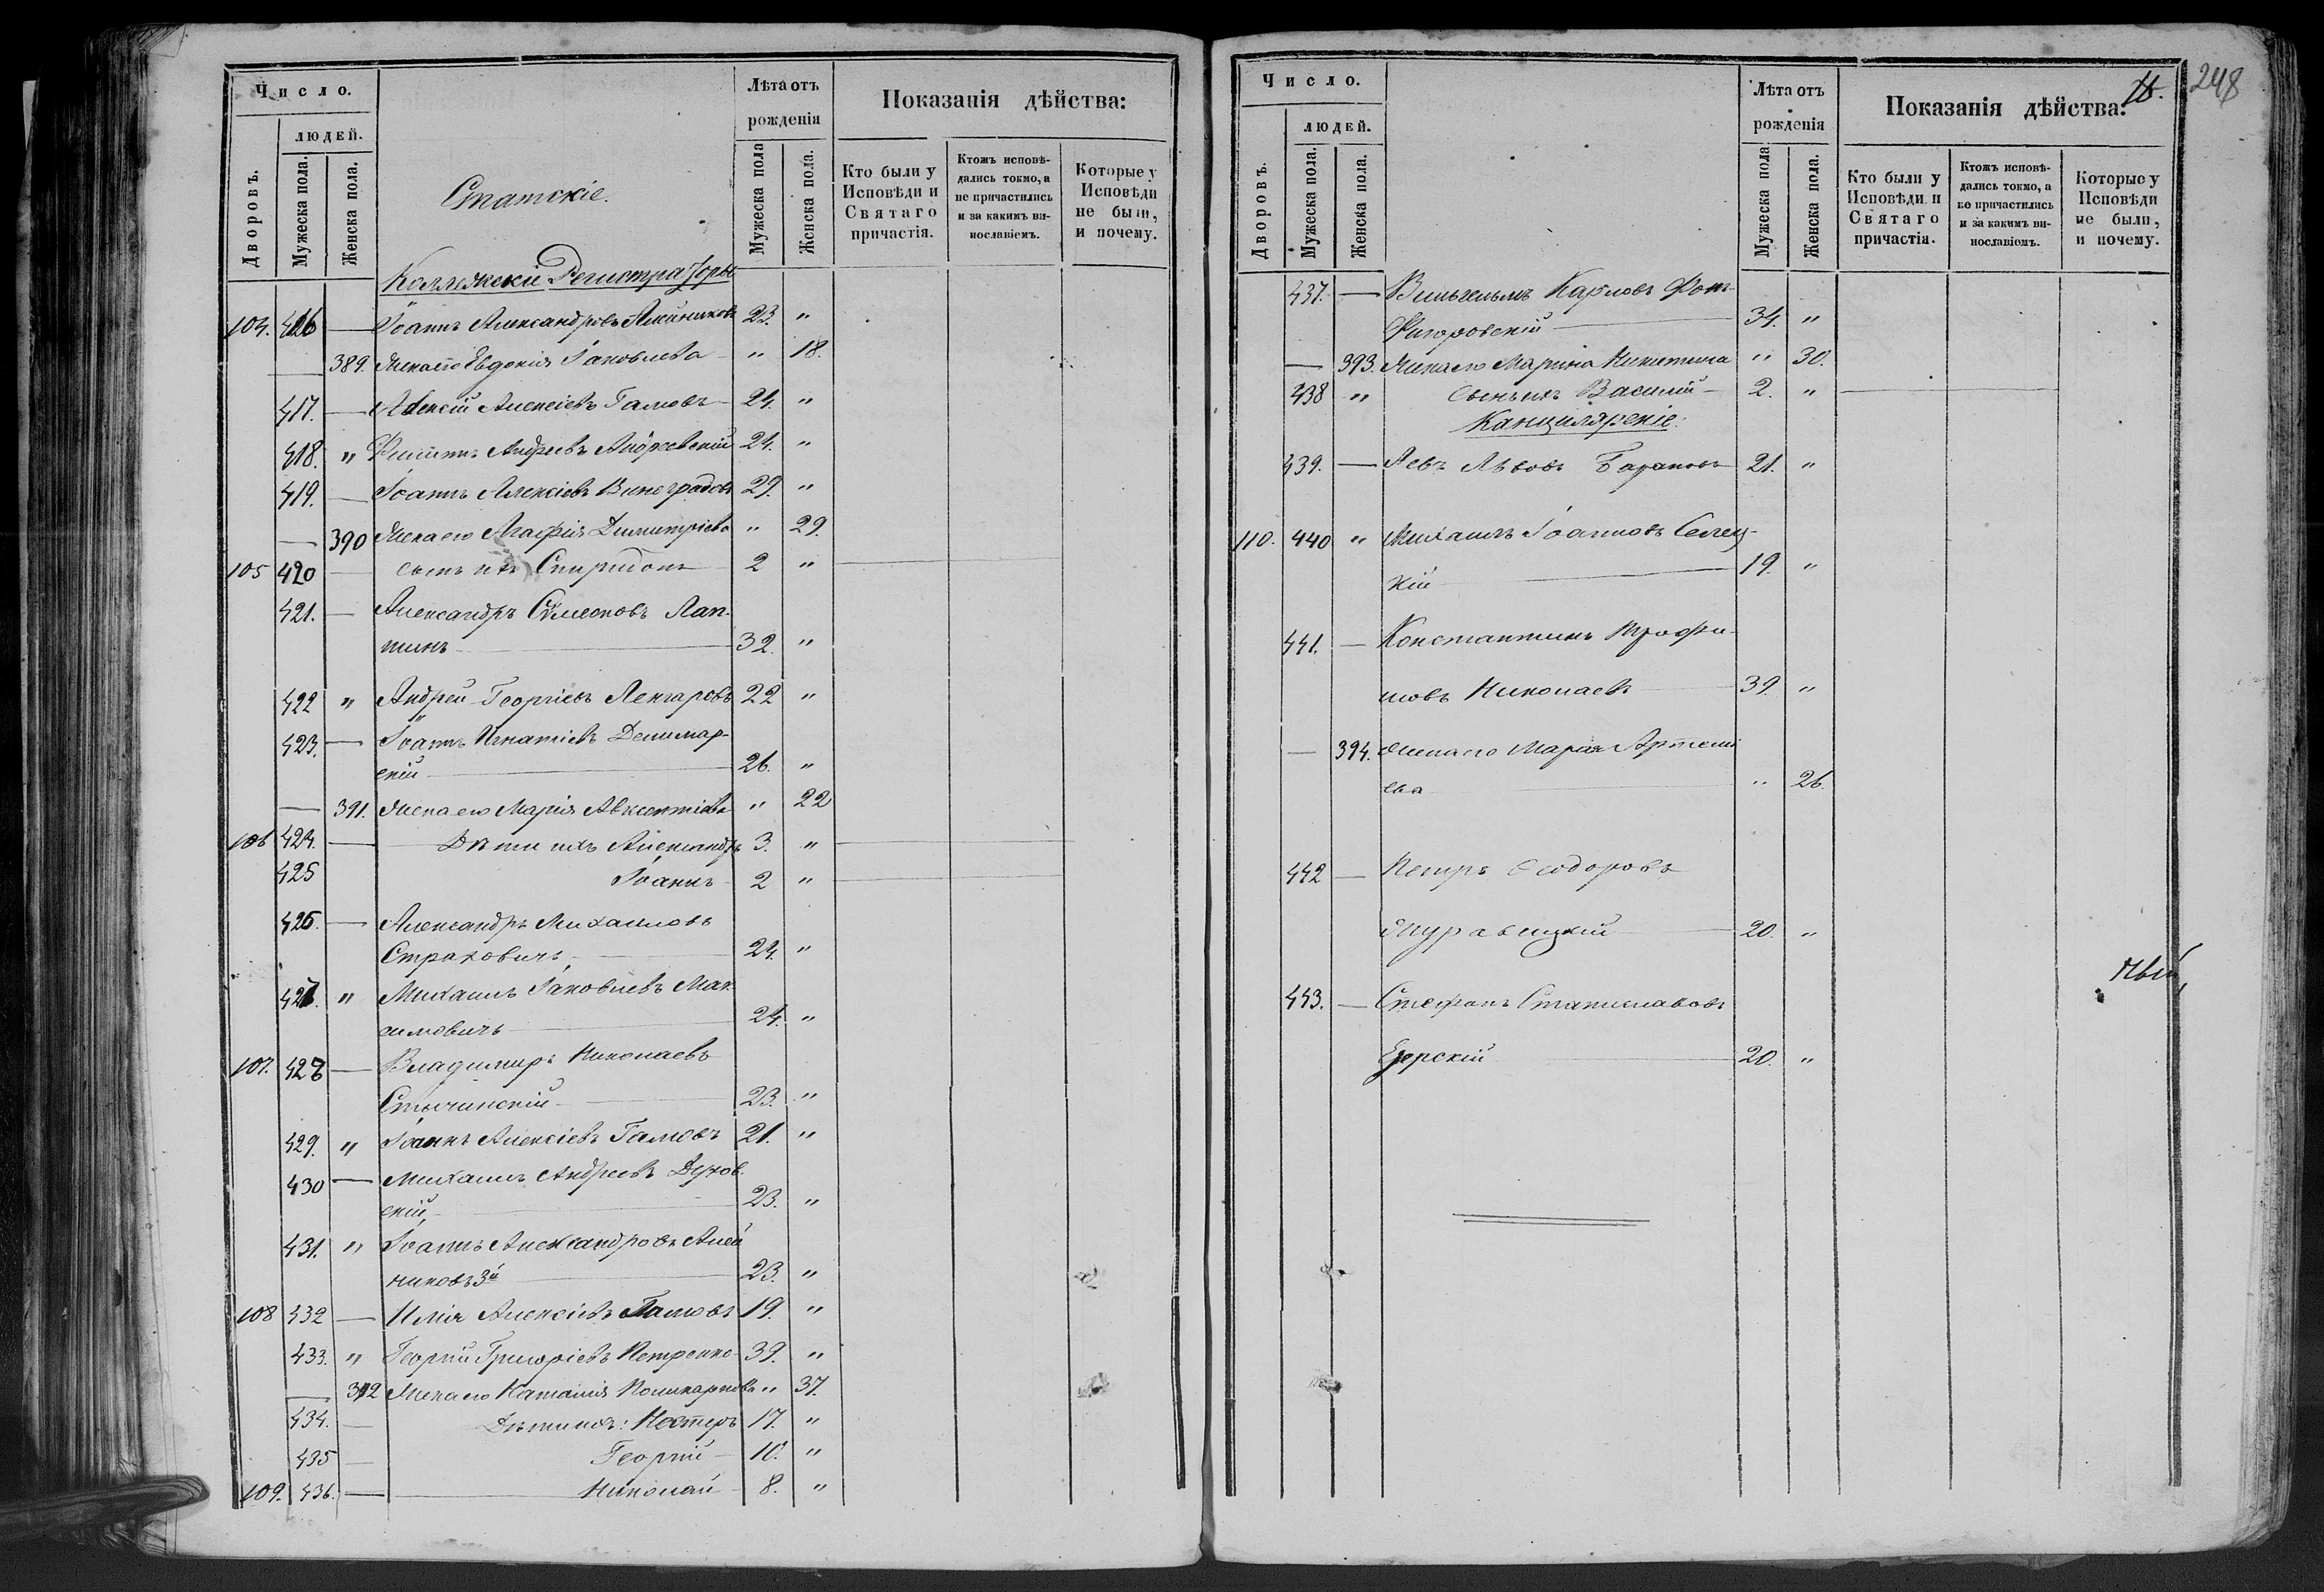 Число.
людей.
Дворовъ.
Мужеска пола.
Женска пола.
Статскіе.
Лѣта отъ
рожденія
Мужеска пола
Женска пола.
Показанія дѣйства:
Кто были у
Исповѣди и
Святаго
причастія.
Ктожъ исповѣ-
дались токмо, а
не причастились
и за какимъ ви-
нословіемъ.
Которые у
Исповѣди
не были,
и почему.
Коллежскіе Регистраторы
104. 416 — Іоаннъ Александровъ Алейниковъ 23. "
— 389. Жена его Евдокія Іаковлева " 18.
417. — Алексій Алексіевъ Гамовъ 24. "
418. " Филиппъ Андреевъ Андреевскій 24. "
419. — Іоаннъ Алексіевъ Виноградовъ 29. "
— 390 Жена его Агафія Димитріева " 29.
105 420 — сынъ ихъ Спиридонъ 2 "
421. — Александръ Симеоновъ Лап-
тинъ 32. "
422 " Андрей Георгіевъ Ленгаровъ 22 "
423. — Іоаннъ Игнатіевъ Демимар-
скій 26. "
— 391. Жена его Марія Авксентіева " 22
106 424. — Дѣти ихъ Александръ 3. "
425 Іоаннъ 2 "
426. — Александръ Михаиловъ
Страховичъ 24. "
427. " Михаилъ Іаковлевъ Мак-
симовичъ 24. "
107. 428 — Владимиръ Николаевъ
Стычинскій 23. "
429. " Іоаннъ Алексіевъ Гамовъ 21. "
430 — Михаилъ Андреевъ Духов-
скій 23. "
431. " Іоаннъ Александровъ Алей
никовъ 3й 23. "
108 432 — Илія Алексіевъ Гамовъ 19. "
433. " Георгій Григоріевъ Петренко 39. "
— 392 Жена его Наталія Поликарпова " 37.
434. — Дѣти ихъ: Несторъ 17. "
435 — Георгій 10. "
109. 436. — Николай 8. "
248
Число.
людей.
Дворовъ.
Мужеска пола.
Женска пола.
Лѣта отъ
рожденія
Мужеска пола
Женска пола.
Показанія дѣйства:
Кто были у
Исповѣди и
Святаго
причастія.
Ктожъ исповѣ-
дались токмо, а
не причастились
и за какимъ ви-
нословіемъ.
Которые у
Исповѣди
не были,
и почему.
437. — Вильгельмъ Карловъ Фонъ-
Фигоровскій 34. "
— 393. Жена его Марина Никитина " 30.
438 " сынъ ихъ Василій 2. "
Канцилярскіе:
439. — Левъ Львовъ Барановъ 21. "
110. 440 " Михаилъ Іоанновъ Селец-
кій 19. "
441. — Константинъ Трофи-
мовъ Николаевъ 39. "
— 394. Жена его Марія Артеми
ева " 26.
442 — Петръ Ѳеодоровъ
Журавицкій 20. "
443. — Стефанъ Станиславовъ
Езерскій 20. "